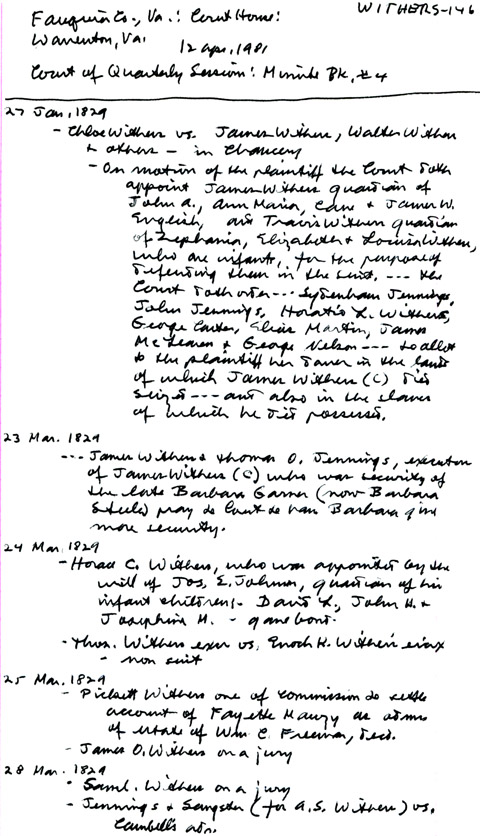 WITHERS-146
Fauquier Co., Va.: Court House:
Warrenton, Va.
12 Apr, 1981
Court of Quarterly Session: Minute Bk, #4
27 Jan, 1829
- Chloe Withers vs. James Withers, Walter Withers
+ others - in Chancery
- On motion of the plaintiff the Court doth
appoint James Withers guardian of
John A., Ann Maria, & James W.
English, and Travis Withers guardian
of Zephania, Elizabeth & Louisa Withers,
who are infants, for the purpose of
defending them in the suit. --- the
Court doth order --- Sydenham Jennings,
John Jennings, Horatio L. Withers,
George Carter, Elias Martin, James
& George Nelson --- to allot
to the plaintiff her dower in the land
of which James Withers (C) died
seized --- and also in the slaves
of which he died possessed.
23 Mar. 1829
--- James Withers & Thomas O. Jennings, executors
of James Withers (C) who was security of
the late Barbara Garner (now Barbara
Steele) pray do Court to have Barbara give
more security.
24 Mar. 1829
- Horace C. Withers, who was appointed by the
will of Jos. E. Johnson, guardian of his
infant children:- David L., John H. &
Josephine H. - gave bond.
- Thos. Withers exor vs. Enoch K. Withers' exex
- non suit
25 Mar. 1829
- Pickett Withers one of commission to settle
account of Fayette Mauzy as admr
of estate of Wm C. Freeman, decd.
- James O. Withers on a jury
28 Mar. 1829
- Saml. Withers on a jury
- Jennings & Sangster (for A.S. Withers) vs.
Cambell's adr.